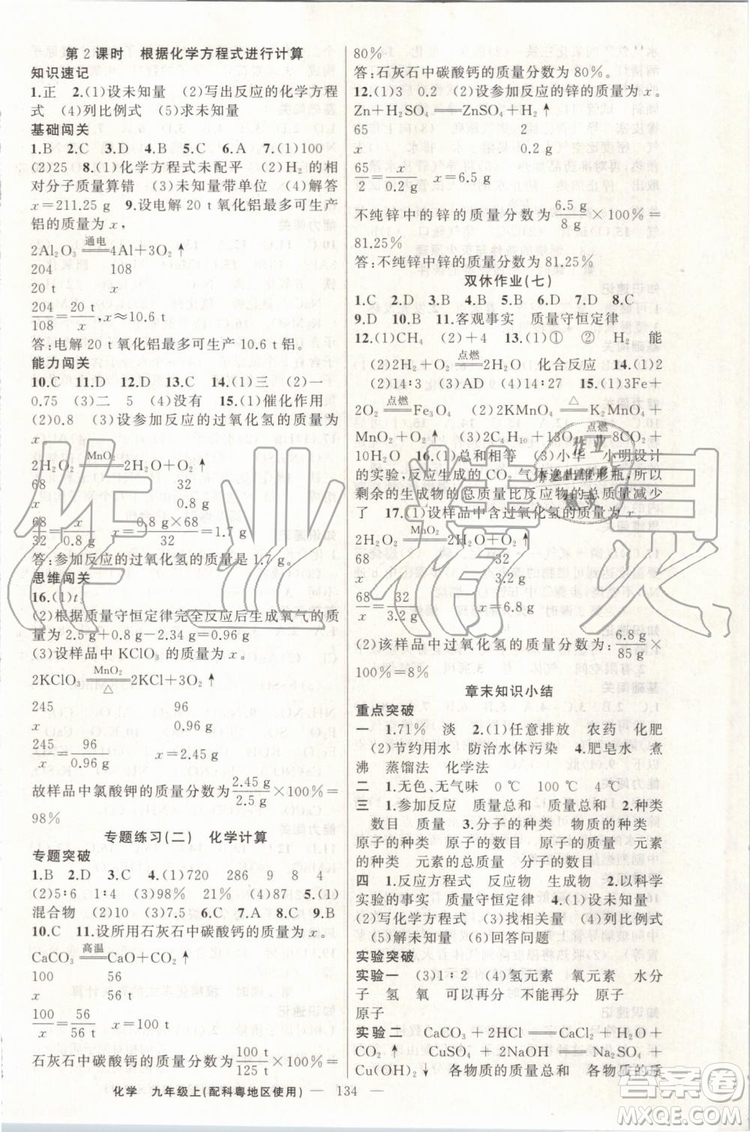 第2课时 根据化学方程式进行计算
知识速记
1.正 2.(1)设未知量 (2)写出反应的化学方程
式 (4)列比例式 (5)求未知量
基础闯关
1.B 2.A 3.D 4.D 5.B 6.B 7.(1)100
(2)25 8.(1)化学方程式未配平 (2)氧化镁的相
对分子质量算错 (3)未知量带单位 (4)解答
x=211.25 g 9.设电解 20 t 氧化铝最多可生产
铝的质量为 x,
2Al₂O₃ 通电 4Al+3O₂↑
204 108
20 t x
204/108=20 t/x x≈10.6 t
答:电解 20 t 氧化铝最多可生产 10.6 t 铝。
能力闯关
10.C 11.D 12.D 13.C 14.(1)三 (2)一
24x/35y (3)二 5 (4)没有 15.(1)催化作用
(2)0.8 (3)设参加反应的过氧化氢的质量为
x
2H₂O₂ MnO₂ 2H₂O+O₂↑
68 32
x 0.8 g
68/32=x/0.8 g x=0.8 g×68/32=1.7 g
答:参加反应的过氧化氢的质量是 1.7 g。
思维闯关
16.(1)t₃
(2)根据质量守恒定律完全反应后生成氧气的质量为
2.5 g+0.8 g-2.34 g=0.96 g
(3)设样品中 KClO₃ 的质量为 x。
2KClO₃ MnO₂ △ 2KCl+3O₂↑
245 96
x 0.96 g
245/x=96/0.96 g x=2.45 g
故样品中氯酸钾的质量分数为 2.45 g/2.5 g×100%=
98%
专题练习(二) 化学计算
专题突破
1.B 2.D 3.C 4.(1)720 286 9 8 4
(2)5:6 1:4 (3)98% 21% 5.(1)
混合物 (2)0.2 6.C 7.A 8.C 9.B
10.C 11.设所用石灰石中碳酸钙的质量为 x。
CaCO₃ 高温 CaO+CO₂↑
100 56
x 56 t
100/x=56/56 t x=100 t
石灰石中碳酸钙的质量分数为 100 t/125 t×100%=
80%
答:石灰石中碳酸钙的质量分数为 80%。
12.(1)3 0.2 (2)设参加反应的锌的质量为 x。
Zn+H₂SO₄══ZnSO₄+H₂↑
65 2
x 0.2 g
65/2=x/0.2 g x=6.5 g
不纯锌中的锌的质量分数为 6.5 g/8 g×100%=
81.25%
答:不纯锌中的锌的质量分数为 81.25%
双休作业(七)
1.C 2.D 3.A 4.A 5.C 6.B 7.C 8.C
9.D 10.B 11.客观事实 质量守恒定律
12.(1)C 14 (2)D 13.(1)① ② H 能
(2)2H₂+O₂ 点燃 2H₂O 化合反应 14.(1)2
(2)14:3 (3)D (4)14:27 15.(1)3Fe+
2O₂ 点燃 Fe₃O₄ (2)2KMnO₄ △ K₂MnO₄+
MnO₂+O₂↑ (3)2C₄H₁₀+13O₂ 点燃 8CO₂+
10H₂O 16.(1)总和相等 (2)小华 小明设计
的实验,反应生成的 CO₂ 气体逸出锥形瓶,所以
剩余的生成物的总质量比反应物的总质量减少
了 17.(1)设样品中含过氧化氢的质量为 x。
2H₂O₂ MnO₂ 2H₂O+O₂↑
68 32
x 3.2 g
68/x=32/3.2 g x=6.8 g
(2)该样品中过氧化氢的质量分数为 6.8 g/85 g×
100%=8%
章末知识小结
重点突破
一 1.71% 淡 2.(1)任意排放 农药 化肥
(2)节约用水 防治水体污染 4.肥皂水 煮
沸 蒸馏法 化学法
二 1.无色、无气味 0 ℃ 100 ℃ 4 ℃
三 1.参加反应 质量总和 质量总和 2.种类
数目 质量 3.分子的种类 物质的种类
原子的种类 原子的数目 原子的质量 元素
的种类 元素的总质量 分子的数目
四 1.反应方程式 反应物 生成物 2.以科学
实验的事实 质量守恒定律 3.(1)设未知量
(2)化学方程式 (3)找相关量 (4)列比例式
(5)解未知量 (6)回答问题
实验突破
实验一 (3)1:2 (4)氢元素 氧元素 水分
子 氢 氧 可以再分 不能再分 原子
原子
实验二 CaCO₃+2HCl══CaCl₂+H₂O+
CO₂↑ CuSO₄+2NaOH══Na₂SO₄+
Cu(OH)₂↓ 依然 质量守恒定律
化学 九年级上(配科粤地区使用) — 134 —
作业精灵